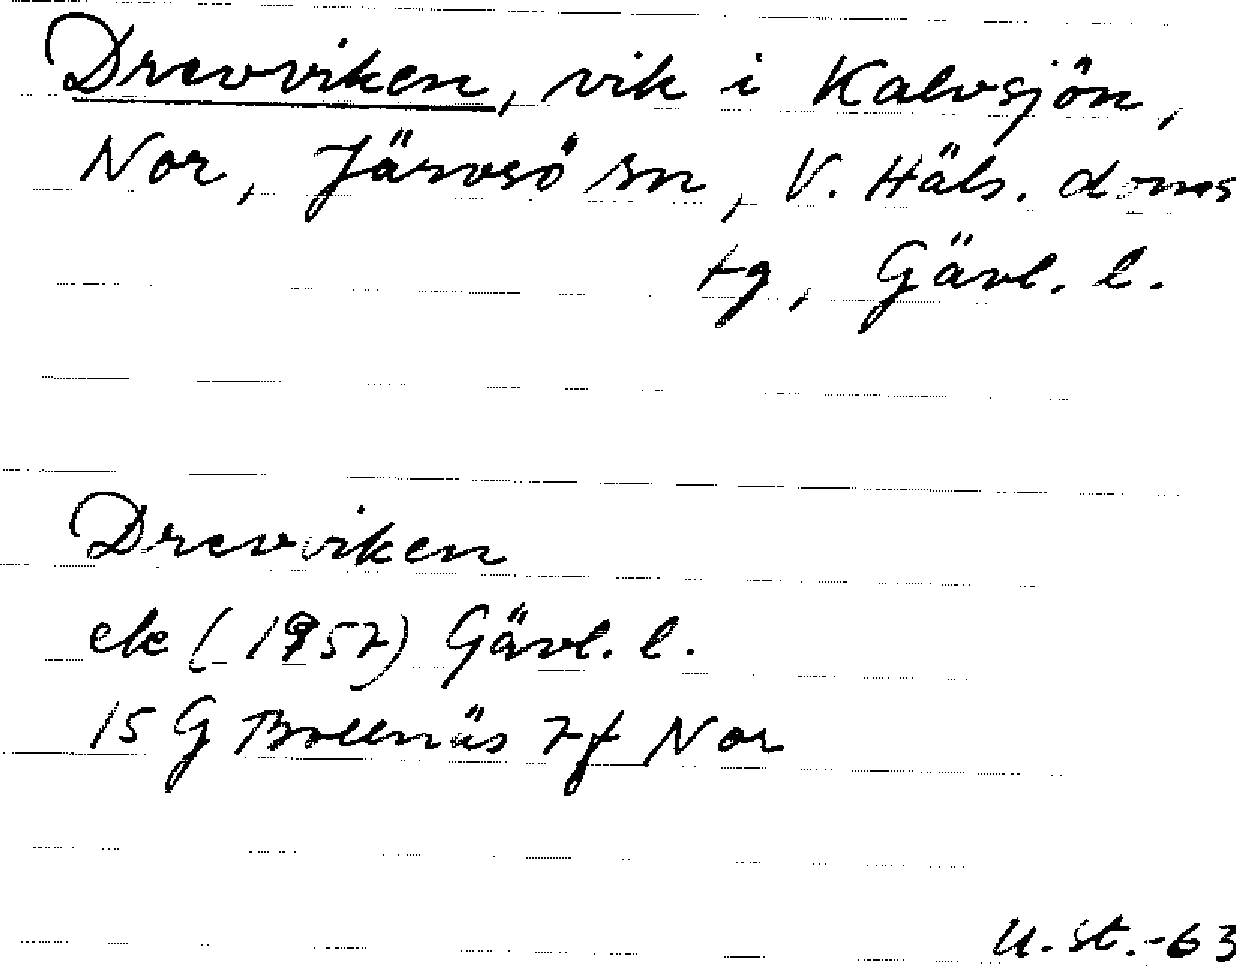 Drevviken, vik i Kalvsjön,
Nor, Järvsö sn, V. Häls. doms
tg, Gävl. l.
Drevviken
ek (1957) Gävl. l.
15 G Bollnäs 7f Nor
U. St. -63